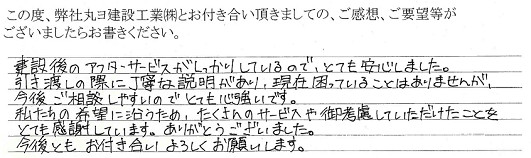 この度、弊社丸ヨ建設工業㈱とお付き合い頂きましての、ご感想、ご要望等が
ございましたらお書きください。
建設後のアフターサービスがしっかりしているので、とても安心しました。
引き渡しの際に丁寧な説明があり、現在困っていることはありませんが、
今後ご相談しやすいのでとても心強いです。
私たちの希望に沿うため、たくさんのサービスや御考慮していただけたことを
とても感謝しています。ありがとうございました。
今後とも お付き合い よろしくお願いします。